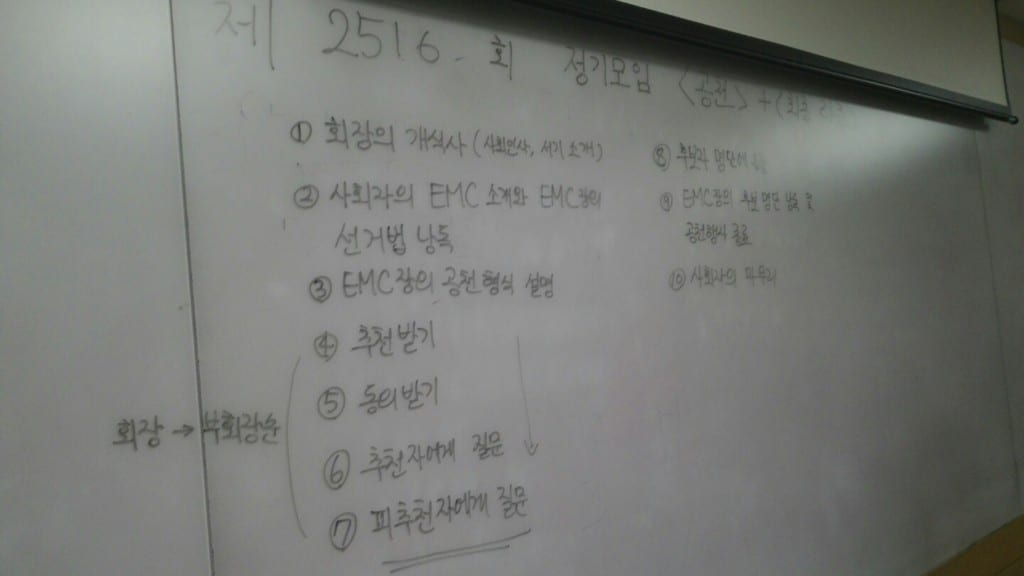 제 2516회 정기모임 <공천> + (회원
① 회장의 개식사 (사회인사, 서기 소개)
② 사회자의 EMC 소개와 EMC장의
선거법 낭독
③ EMC장의 공천형식 설명
④ 추천받기
⑤ 동의받기
⑥ 추천자에게 질문
⑦ 피추천자에게 질문
회장 → 부회장순
⑧ 후보자 명단
⑨ EMC장의 후보 명단 낭독 및
공천행사 종료
⑩ 사회자의 마무리